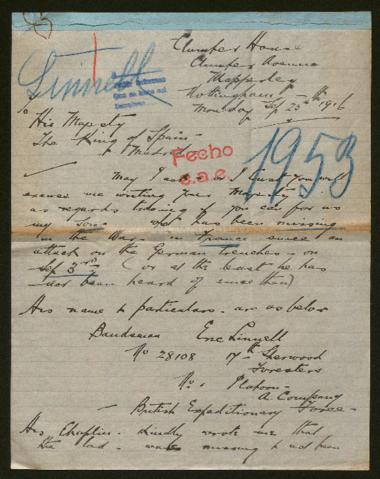 Linnell
Clumber House
Clumber Avenue
Mapperley
Nottingham
Monday Sep 25th 1916
To His Majesty
The King of Spain
Madrid
Fecho
e.a.e
1953
May I ask & I trust you will
excuse me writing your Majesty
as regards tidings if you can for us
my Son who has been missing
in the War in France since an
attack on the German trenches on
Sep 3rd (or at the least he has
not been heard of since then)
His name & particulars are as below
Bandsman Eric Linnell
No 28108 17th Sherwood
Foresters
No. 1 Platoon
A Company
British Expeditionary Force
His Chaplin kindly wrote me that
the lad was missing & had been